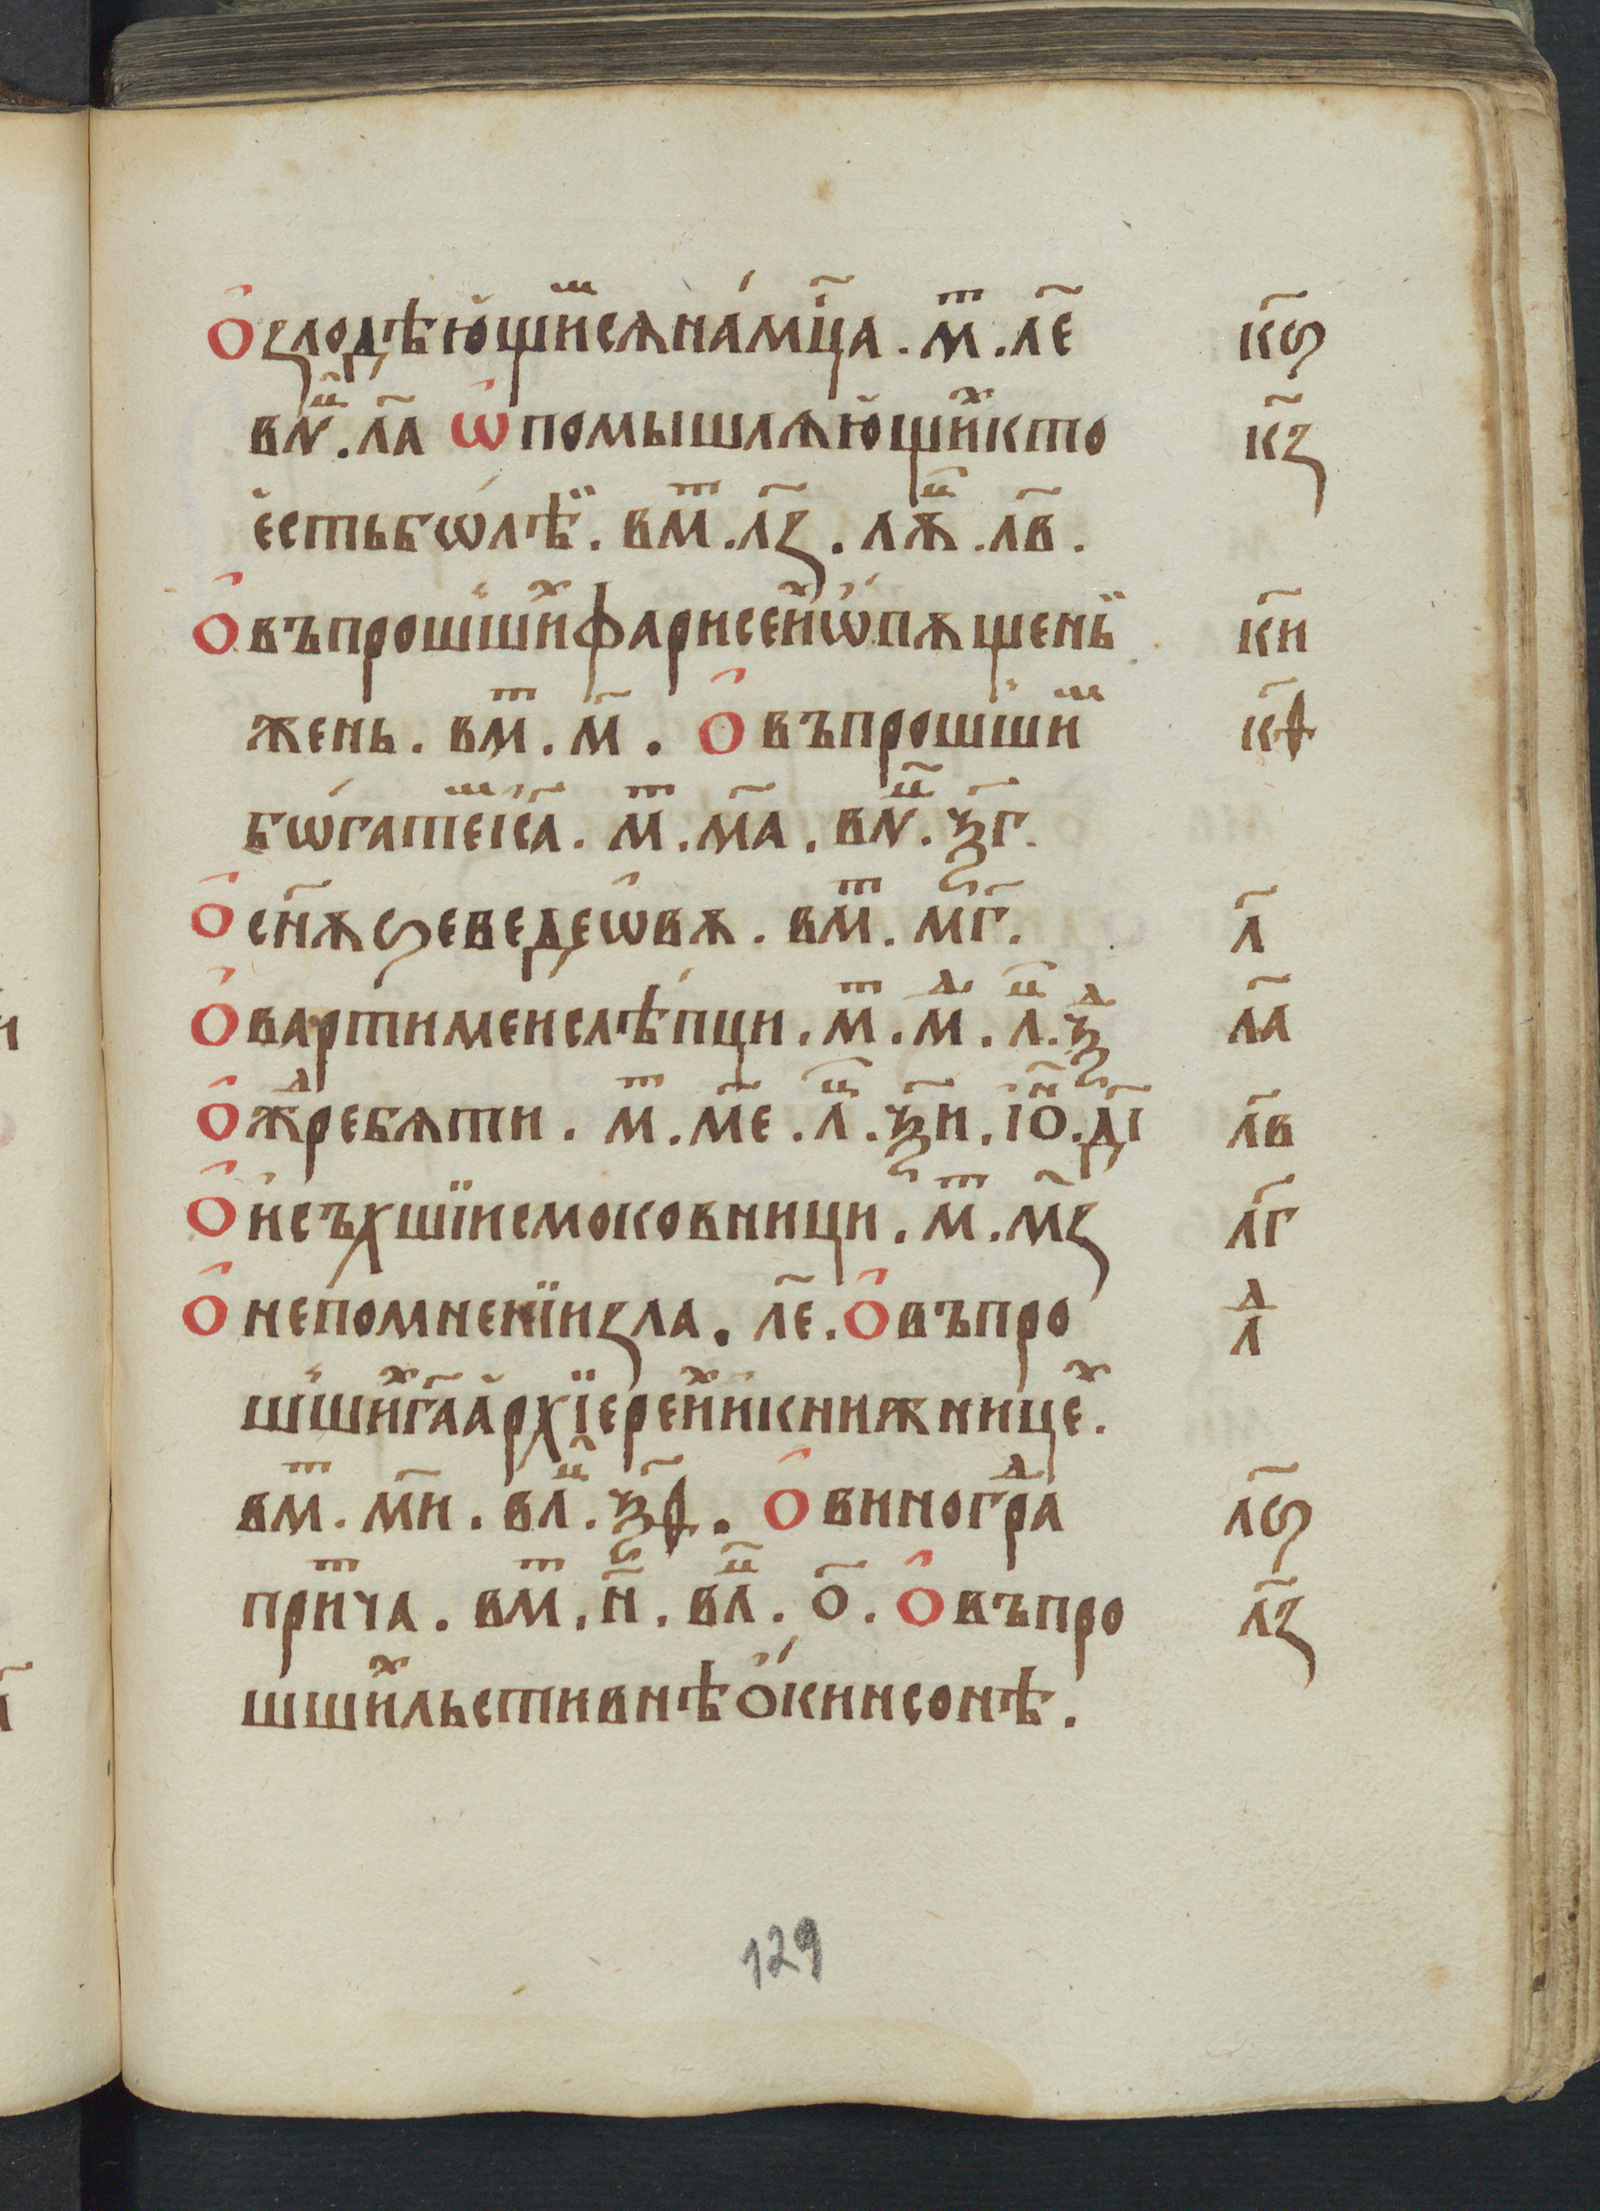 Ѻ҆ злодѣю҆щиⷨсѧ на́ мцⷭ҇а . мⷮ . л҃е к҃ѕ
вⷩ҇ . л҃а ѡ҆ помышлѧю҆щиⷯ кто к҃з
е҆сть бѡ́лѣй . в мⷮ . л҃з . лѫⷰ . л҃в .
О҆ въпрошьшиⷯ фарисеиⷯ ѡ҆ пѫщени к҃и
жень . в мⷮ . м҃ . О҆ въпрошьшиⷨ к҃ѳ
бѡ́гатеⷨ і҆с҃а . мⷮ . м҃а . в лⷰ . ѯ҃г .
О҆ сн҃ѫ ѕеведеѡ҆вѫ . в мⷮ . м҃г . л҃
О҆ вартимеи слѣ́пци . мⷮ . мⷣ . лⷰ . ѯⷣ л҃а
О҆ жⷣребѧти . мⷮ . м҃е . лⷰ . ѯ҃и . і҆ѡⷩ . д҃і л҃в
О҆ и҆съхшїи смоковници . мⷮ . м҃з л҃г
О҆ непомненїи зла . л҃е . О҆ въпро лⷣ
шьшиⷯ г҃а а҆рхїереиⷯ и҆ книжницеⷯ .
в мⷮ . м҃и . в лⷰ . ѯ҃ѳ . О҆ виногра л҃ѕ
приⷮча . в мⷮ . н҃ . в лⷰ . о҃ . О҆ въпро л҃з
шшиⷯ льстивнѣ ѻ҆ кинсонѣ .
129